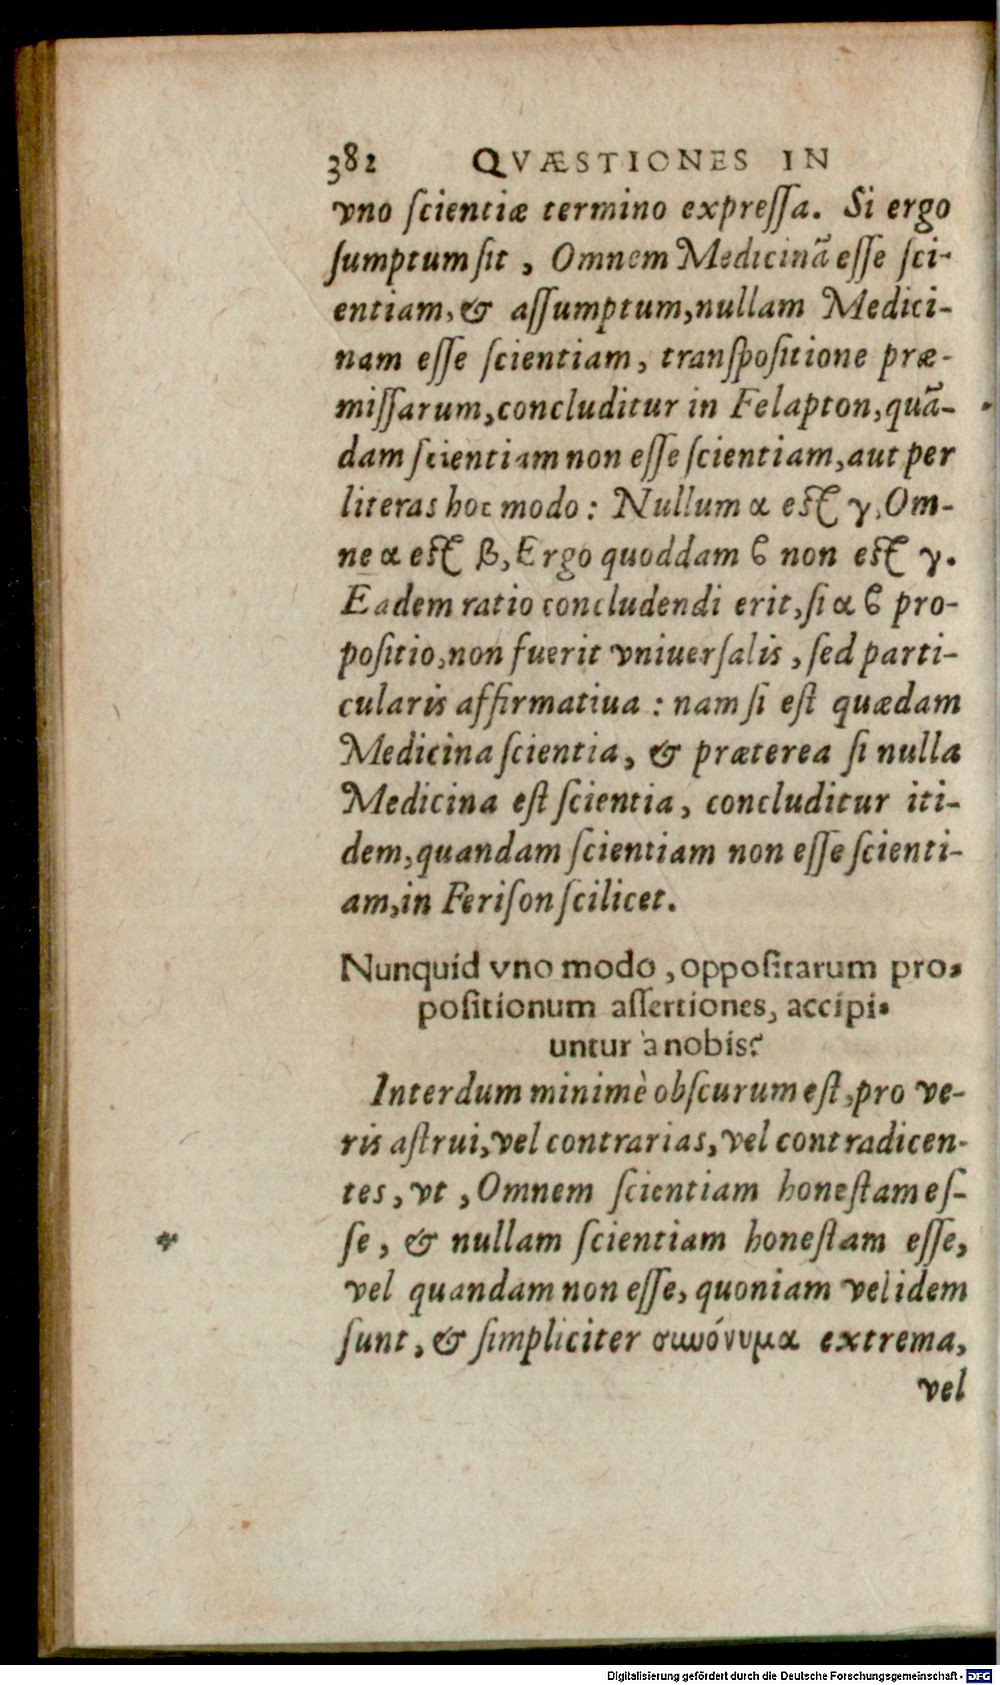 382 QVÆSTIONES IN
vno ſcientiæ termino expreſſa. Si ergo
ſumptum ſit, Omnem Medicinã eſſe ſci-
entiam, & aſſumptum, nullam Medici-
nam eſſe ſcientiam, tranſpoſitione præ-
miſſarum, concluditur in Felapton, quã-
dam ſcientiam non eſſe ſcientiam, aut per
literas hoc modo: Nullum α eſt γ, Om-
ne α eſt β, Ergo quoddam ϐ non eſt γ.
Eadem ratio concludendi erit, ſi α ϐ pro-
poſitio, non fuerit vniuerſalis, ſed parti-
cularis affirmatiua: nam ſi eſt quædam
Medicina ſcientia, & præterea ſi nulla
Medicina eſt ſcientia, concluditur iti-
dem, quandam ſcientiam non eſſe ſcienti-
am, in Feriſon ſcilicet.
Nunquid vno modo, oppoſitarum pro-
poſitionum aſſertiones, accipi-
untur à nobis?
Interdum minimè obſcurum eſt, pro ve-
ris aſtrui, vel contrarias, vel contradicen-
tes, vt, Omnem ſcientiam honeſtam eſ-
ſe, & nullam ſcientiam honeſtam eſſe,
vel quandam non eſſe, quoniam vel idem
ſunt, & ſimpliciter συνώνυμα extrema,
vel
Digitalisierung gefördert durch die Deutsche Forschungsgemeinschaft - DFG